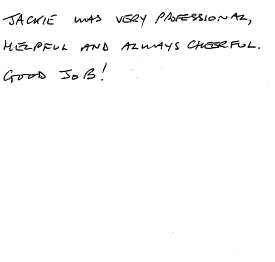 JACKIE WAS VERY PROFESSIONAL,
HELPFUL AND ALWAYS CHEERFUL.
GOOD JOB!